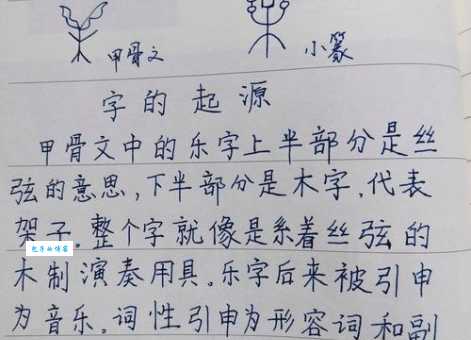 甲骨文 小篆
字的起源
甲骨文中的乐字上半部分是丝
弦的意思,下半部分是木字,代表
架子,整个字就像是系着丝弦的
木制演奏用具。乐字后来被引申
为音乐。词性引申为形容词和副